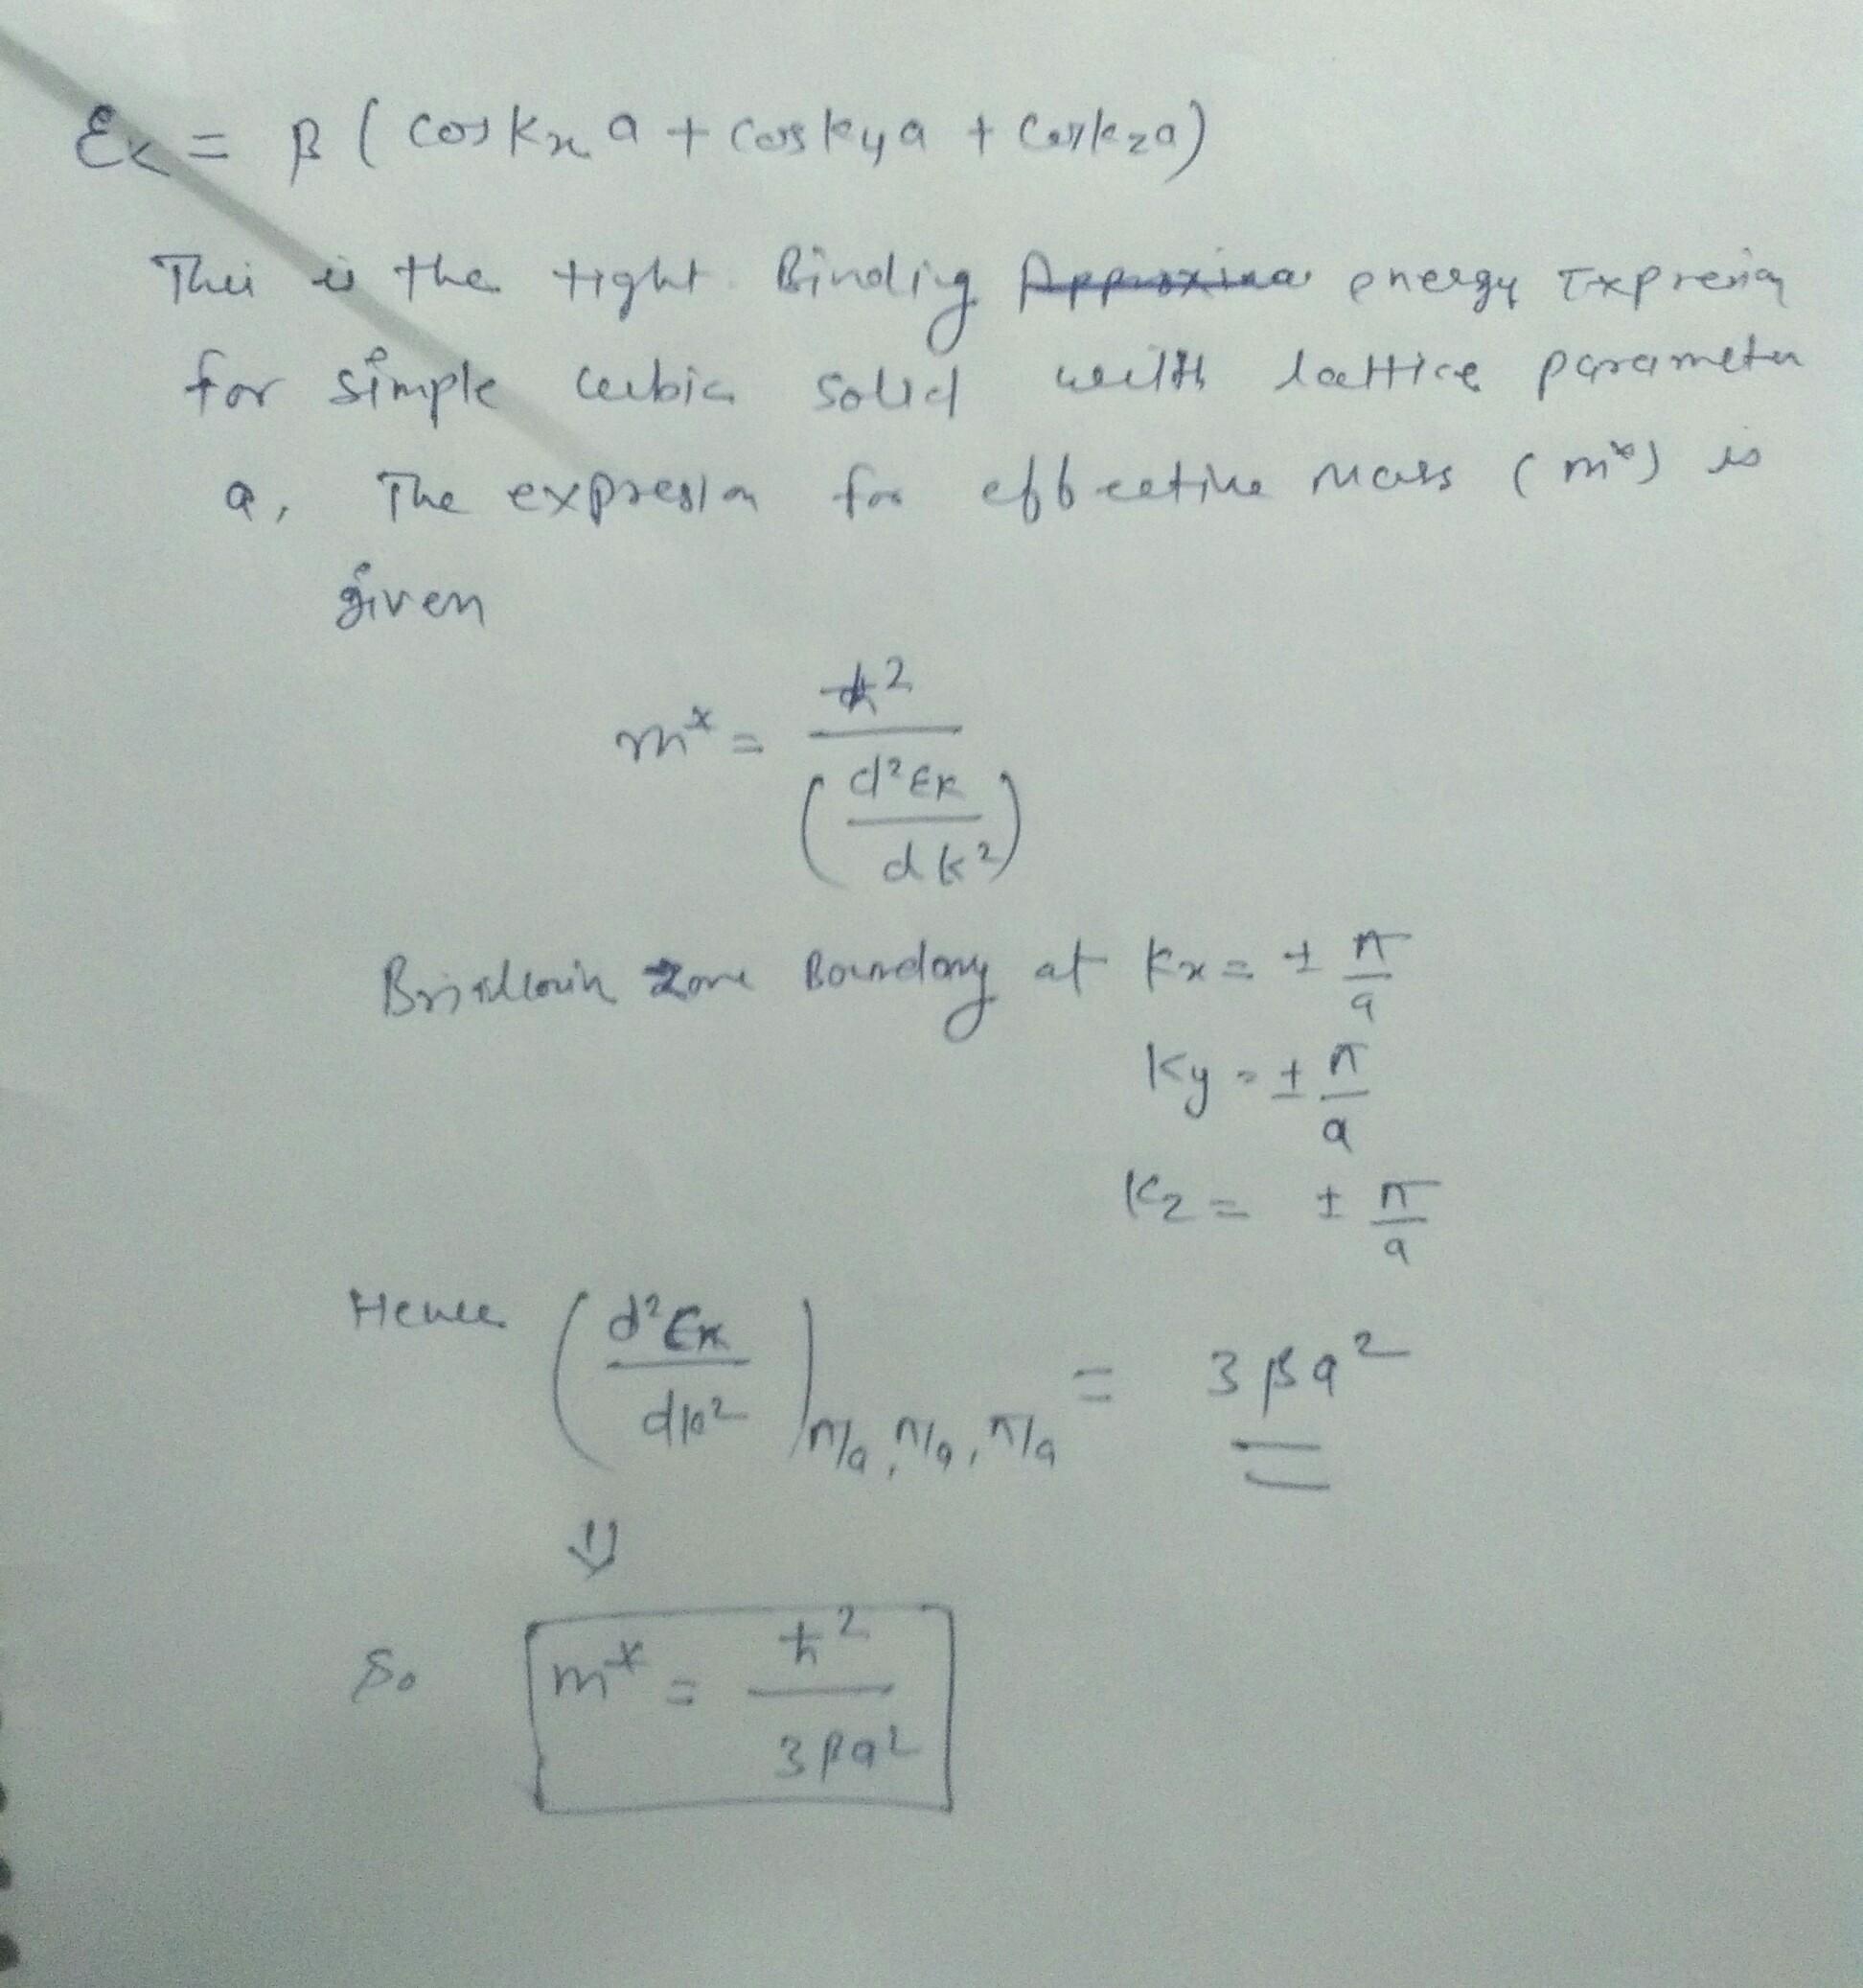 Ɛk = β ( cos kx a + cos ky a + cos kz a)
This is the tight Binding Approxima energy Expresion
for simple cubic solid with lattice parameter
a, The expression for effective mass (m*) is
given
m* = ħ² / (d²Ek / dk²)
Brillouin zone Boundary at kx = ± π/a
ky = ± π/a
kz = ± π/a
Hence (d²Ek / dk²) π/a, π/a, π/a = 3βa²
⇓
So m* = ħ² / 3βa²